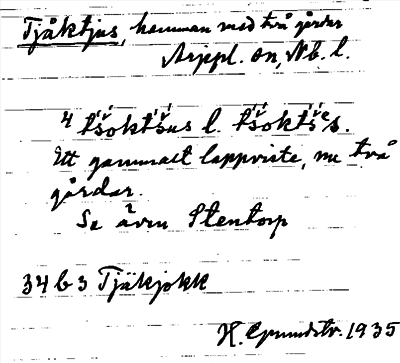 Tjåktjus, hemman med två gårdar
Arjepl. sn, Nb. l.
4 tšoktšus l. tšoktšes.
Ett gammalt lappviste, nu två
gårdar.
Se även Stentorp
34 b 3 Tjäkjokk
H. Grundstr. 1935